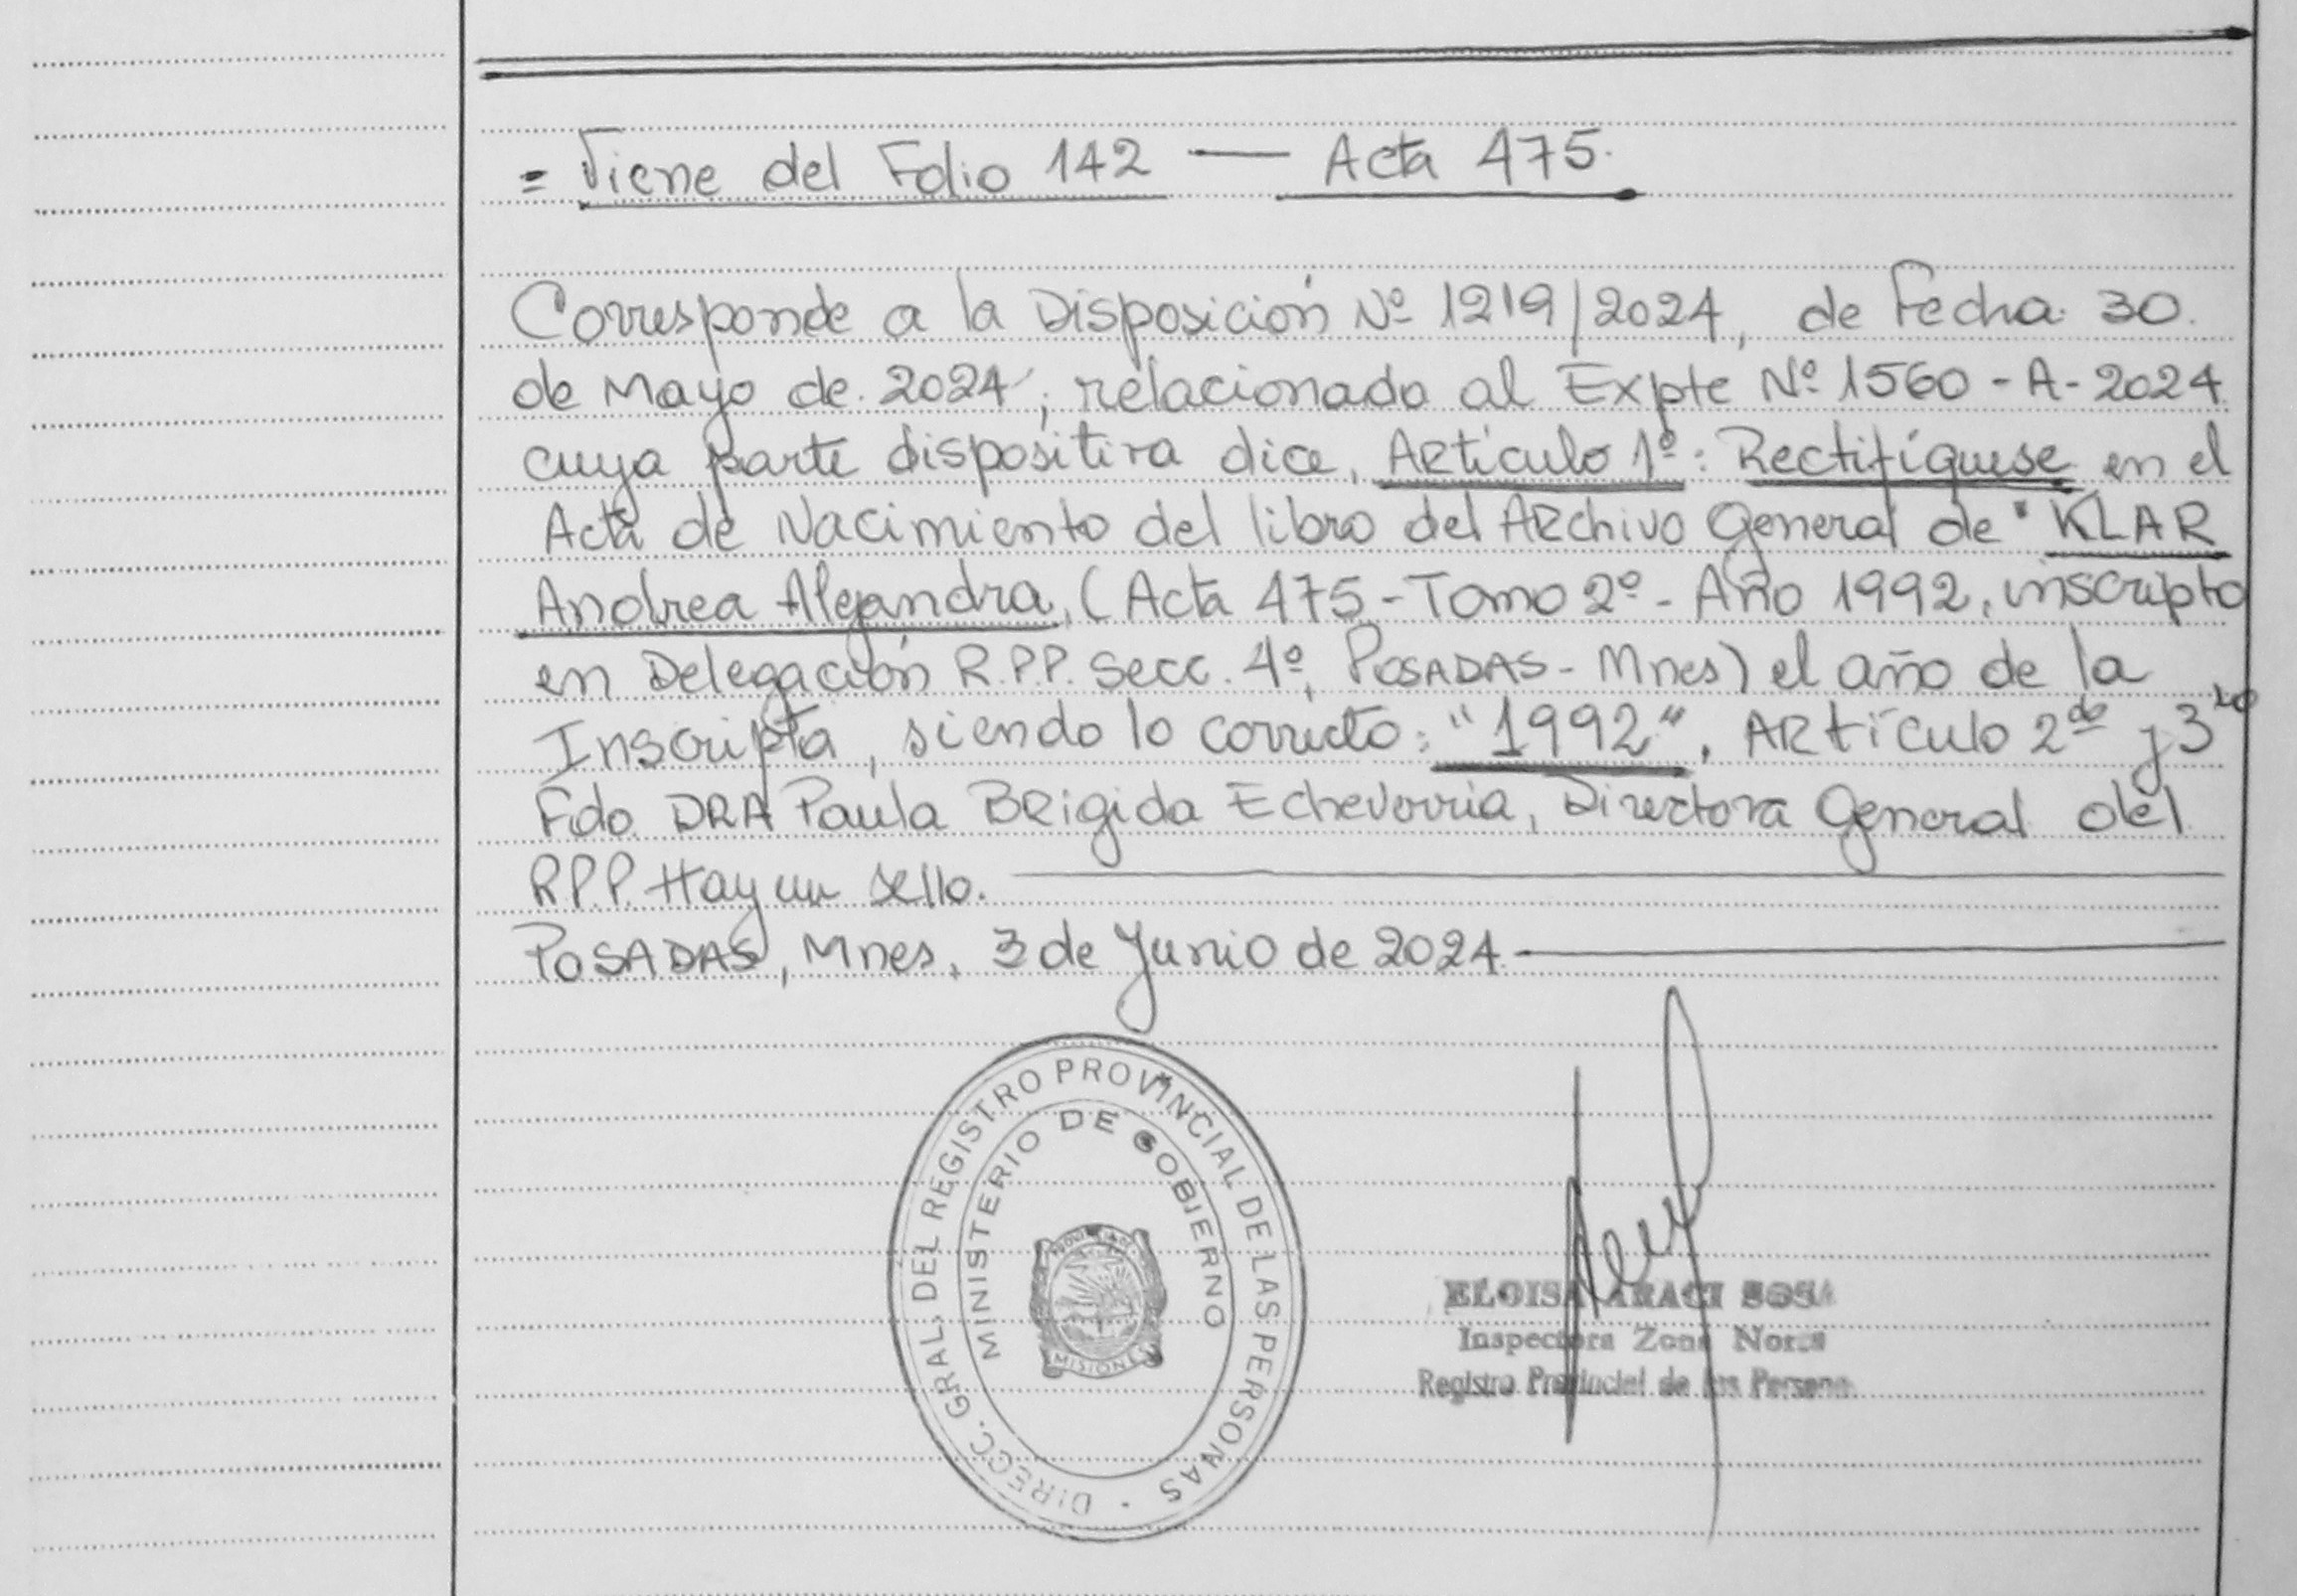 = Viene del Folio 142 — Acta 475.
Corresponde a la Disposición Nº 1219/2024, de Fecha 30.
de Mayo de 2024, relacionado al Expte Nº 1560 - A - 2024
cuya parte dispositiva dice, Artículo 1º: Rectifíquese en el
Acta de Nacimiento del libro del Archivo General de " KLAR
Andrea Alejandra, (Acta 475 - Tomo 2º - Año 1992, inscripto
en Delegación R.P.P. Secc. 4º, POSADAS - Mnes) el año de la
Inscripta, siendo lo correcto: "1992". Artículo 2do y 3ro
Fdo. DRA Paula Brigida Echeverria, Directora General del
R.P.P. Hay un sello.
POSADAS, Mnes, 3 de Junio de 2024
DIRECC. GRAL. DEL REGISTRO PROVINCIAL DE LAS PERSONAS
MINISTERIO DE GOBIERNO
MISIONES
ELOISA ARACI SOSA
Inspectora Zona Norte
Registro Provincial de las Personas